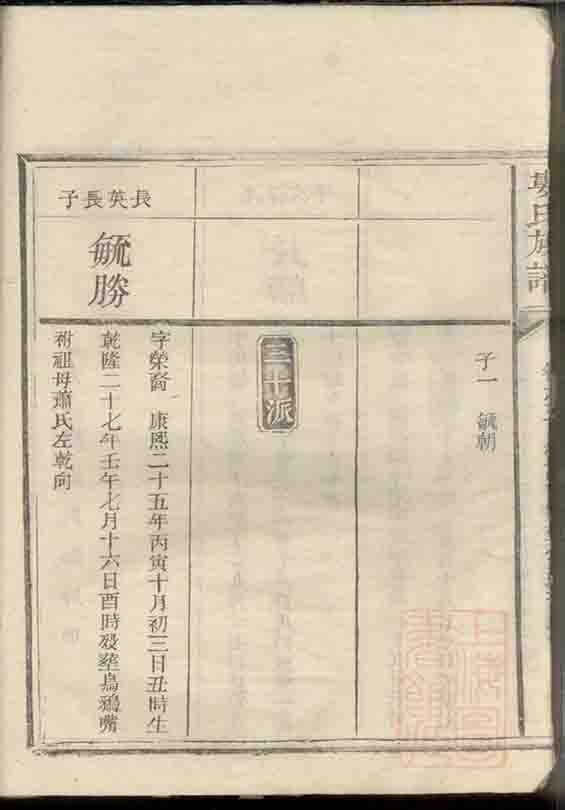 氏族譜
子一　毓朝
三十派
長英長子
毓勝
字榮裔　康熙二十五年丙寅十月初三日丑時生
乾隆二十七年壬午七月十六日酉時歿塟烏鴉嘴
祔祖母蕭氏左乾向